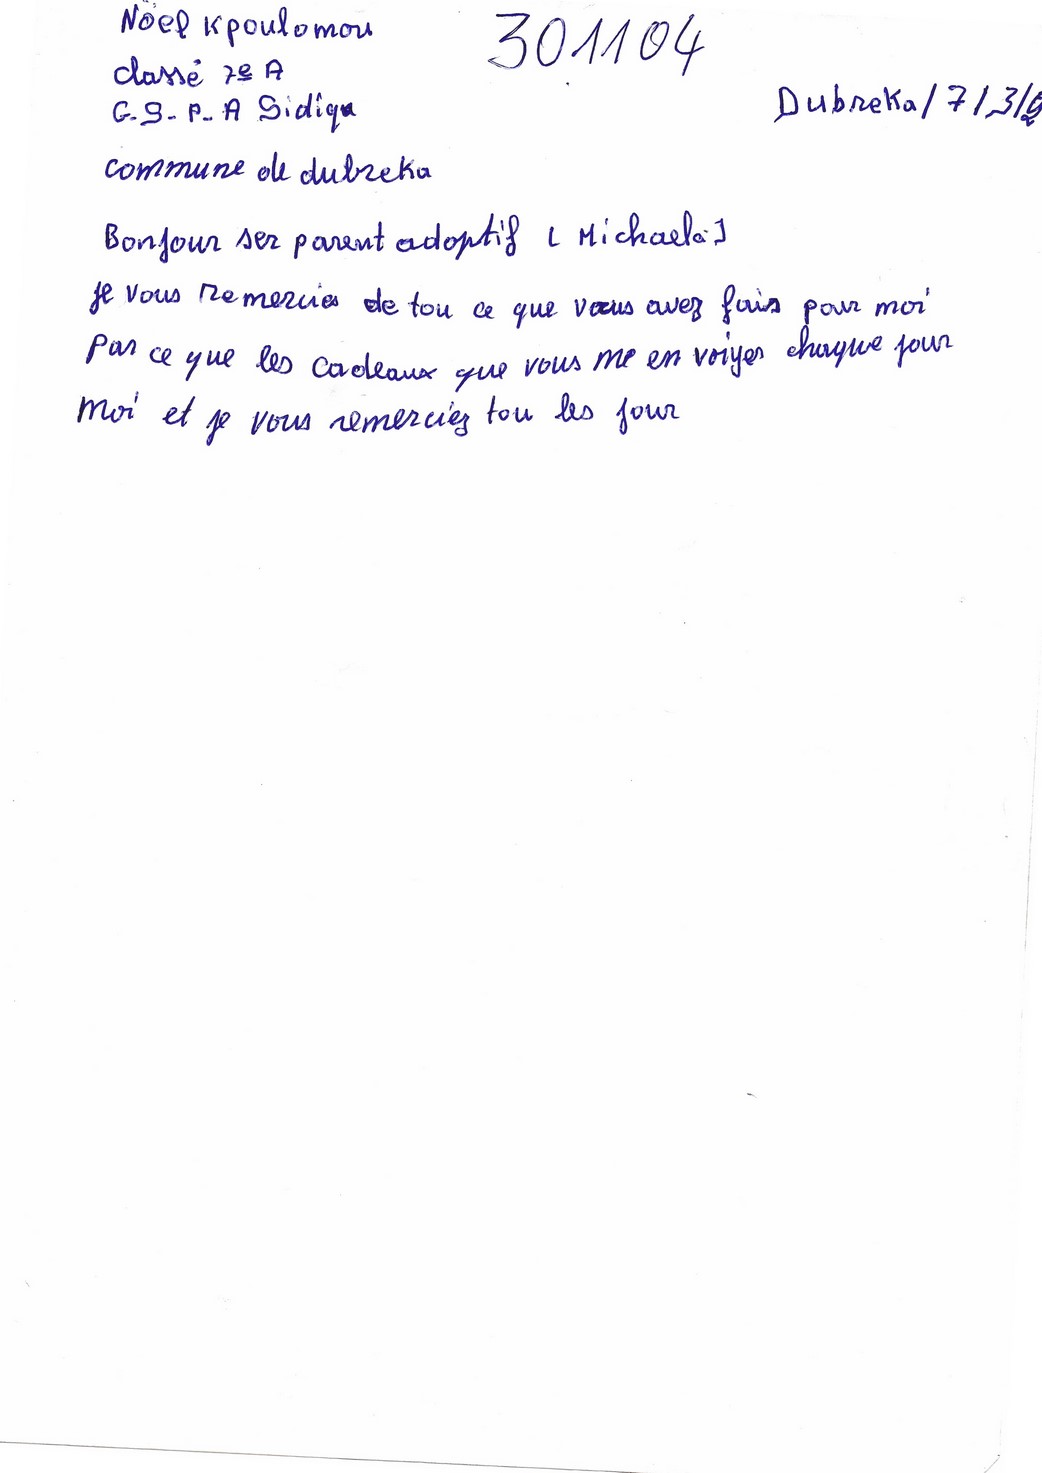 Nöel Kpoulomou
301104
classé 7e A
G.S-P-A Sidiqa
Dubreka/7/3/
commune de dubreka
Bonjour ser parent adoptif [Michaela]
je vous remercies de tou ce que vous avez fais pour moi
Par ce que les cadeaux que vous me en voiyer chaque jour
moi et je vous remerciez tou les jour